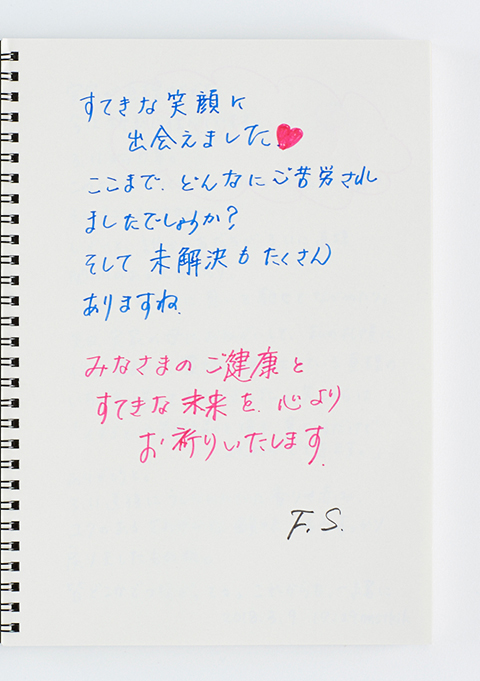 すてきな笑顔に
出会えました
ここまで、どんなにご苦労され
ましたでしょうか?
そして 未解決も たくさん
ありますね.
みなさまの ご健康と
すてきな 未来を、心より
お祈りいたします.
F. S.